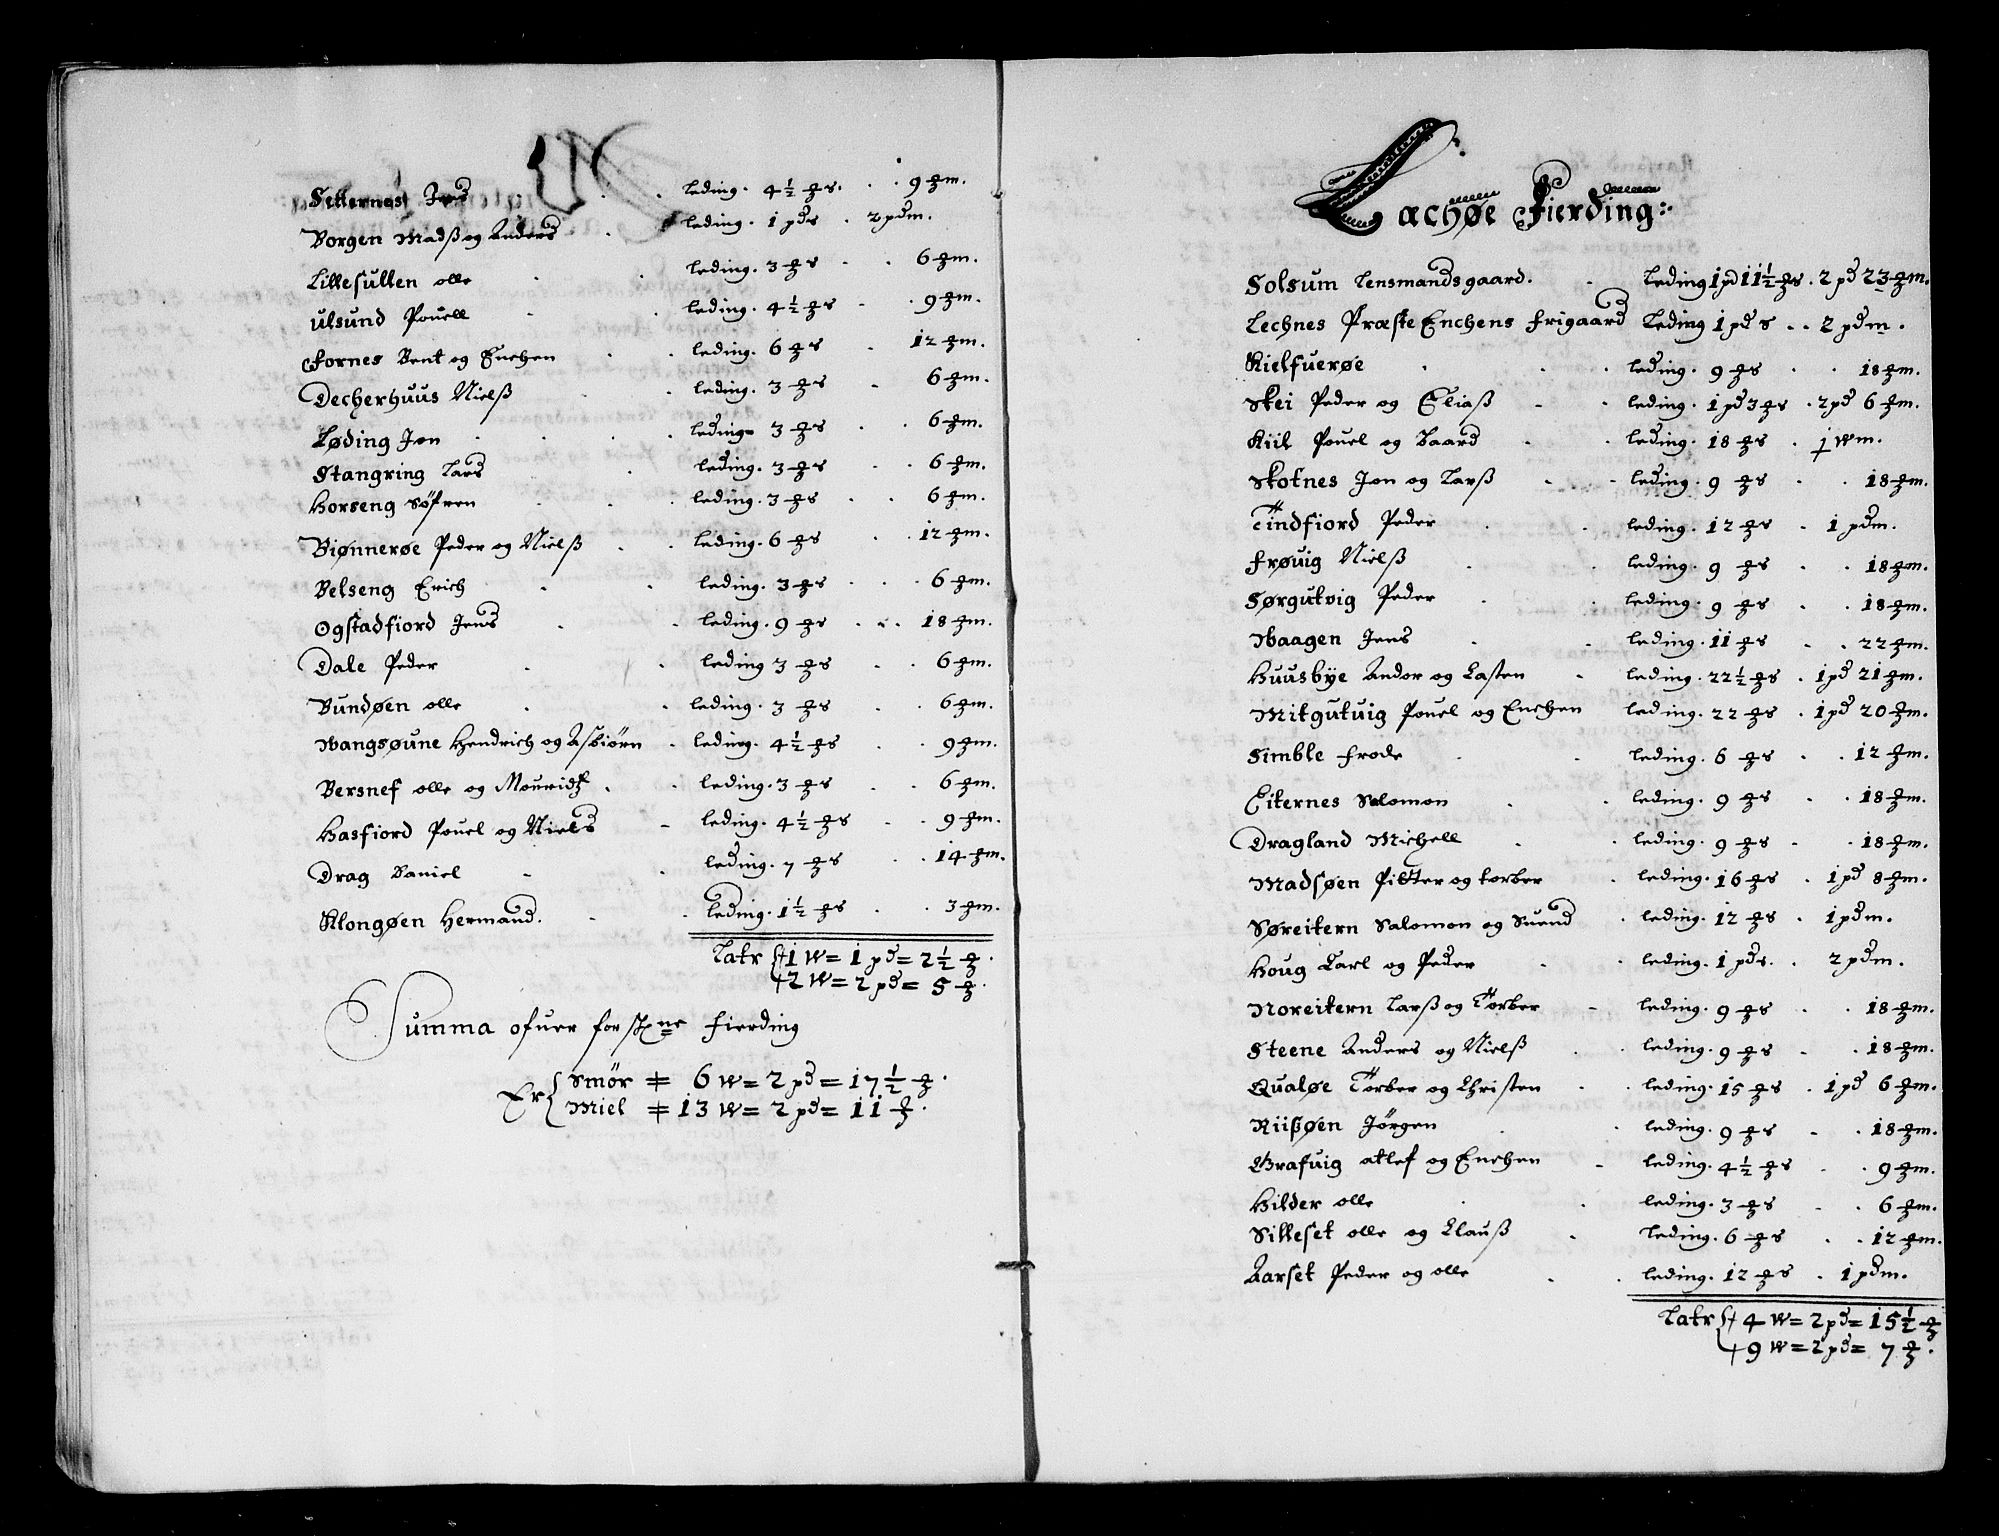 Setternes Jens . . leding. 4½ ℔s. . . 9 ℔m.
Borgen Madß og Anders . leding. 1 pds . 2 pdm.
Lillesulten olle . . leding. 3 ℔s . . 6 ℔m.
Ulsund Pouell . . leding. 4½ ℔s . . 9 ℔m.
Fornes Bent og Enchen . . leding. 6 ℔s . 12 ℔m.
Decherhuus Nielß . . leding. 3 ℔s . 6 ℔m.
Løding Jon . . . leding. 3 ℔s . . 6 ℔m.
Stangring Lars . leding. 3 ℔s . . 6 ℔m.
Horseng Søfren . . leding. 3 ℔s . . 6 ℔m.
Biønnerøe Peder og Nielß . . leding. 6 ℔s . . 12 ℔m.
Belseng Erich . . leding. 3 ℔s . . . 6 ℔m.
Ogstadfiord Jens . . leding. 9 ℔s . . . 18 ℔m.
Dale Peder . . leding 3 ℔s . . 6 ℔m.
Bundøen olle . . leding. 3 ℔s . . 6 ℔m.
Wangsøune Hendrich og Asbiørn . leding. 4½ ℔s . . 9 ℔m.
Bersnef olle og Mouridtz . . leding. 3 ℔s . . 6 ℔m.
Hasfiord Pouel og Niels . leding. 4½ ℔s . . 9 ℔m.
Drag Daniel . . leding. 7 ℔s . . 14 ℔m.
Klongøen Hermand. . . leding. 1½ ℔s . . 3 ℔m.
Latr 1 W = 1 pd = 2½ ℔.
2 W = 2 pd = 5 ℔.
Summa ofuer forskne Fierding
Er Smör 6 W = 2 pd = 17½ ℔.
Miel 13 W = 2 pd = 11 ℔.
Lachøe Fierding:
Solsum Lensmandsgaard. . leding 1 pd 11½ ℔s. 2 pd 23 ℔m.
Lechnes Præste Enchens frigaard leding 1 pd s . . 2 pdm.
Kielfuerøe . . . leding. 9 ℔s . . 18 ℔m.
Skei Peder og Eliaß . . leding. 1 pd 3 ℔s . 2 pd 6 ℔m.
Kiil Pouel og Baard . . leding. 18 ℔s . 1 Wm.
Skotnes Jon og Larß . . leding. 9 ℔s . . 18 ℔m.
Tindfiord Peder . . leding. 12 ℔s . 1 pdm.
Frøuig Nielß . . leding. 9 ℔s . . 18 ℔m.
Sørgutvig Peder . . leding. 9 ℔s . . 18 ℔m.
Waagen Jens . . leding. 11 ℔s . . 22 ℔m.
Huusbye Andor og Casten . leding. 22½ ℔s . 1 pd 21 ℔m.
Mitgutuig Pouel og Enchen leding. 22 ℔s . 1 pd 20 ℔m.
Simble Frode . . leding. 6 ℔s . . 12 ℔m.
Eiternes Salomon . . leding. 9 ℔s . . 18 ℔m.
Dragland Michell . . leding. 9 ℔s . . 18 ℔m.
Madsøen Pitter og Torber . leding. 16 ℔s . 1 pd 8 ℔m.
Søreitern Salomon og Suend . leding. 12 ℔s . 1 pdm.
Houg Carl og Peder . . leding. 1 pds. . 2 pdm.
Noreitern Larß og Torber . leding. 9 ℔s . . 18 ℔m.
Steene Anders og Nielß . . leding. 9 ℔s . . 18 ℔m.
Qualøe Torber og Christen . . leding. 15 ℔s . 1 pd 6 ℔m.
Riißøen Jörgen . . leding. 9 ℔s . . 18 ℔m.
Grafuig atlef og Enchen . leding. 4½ ℔s . . 9 ℔m.
Hilder olle . . leding. 3 ℔s . . 6 ℔m.
Silleset olle og Clauß . leding. 6 ℔s . . 12 ℔m.
Aarset Peder og olle . . leding. 12 ℔s . 1 pdm.
Latr 4 W = 2 pd = 15½ ℔
9 W = 2 pd = 7 ℔.